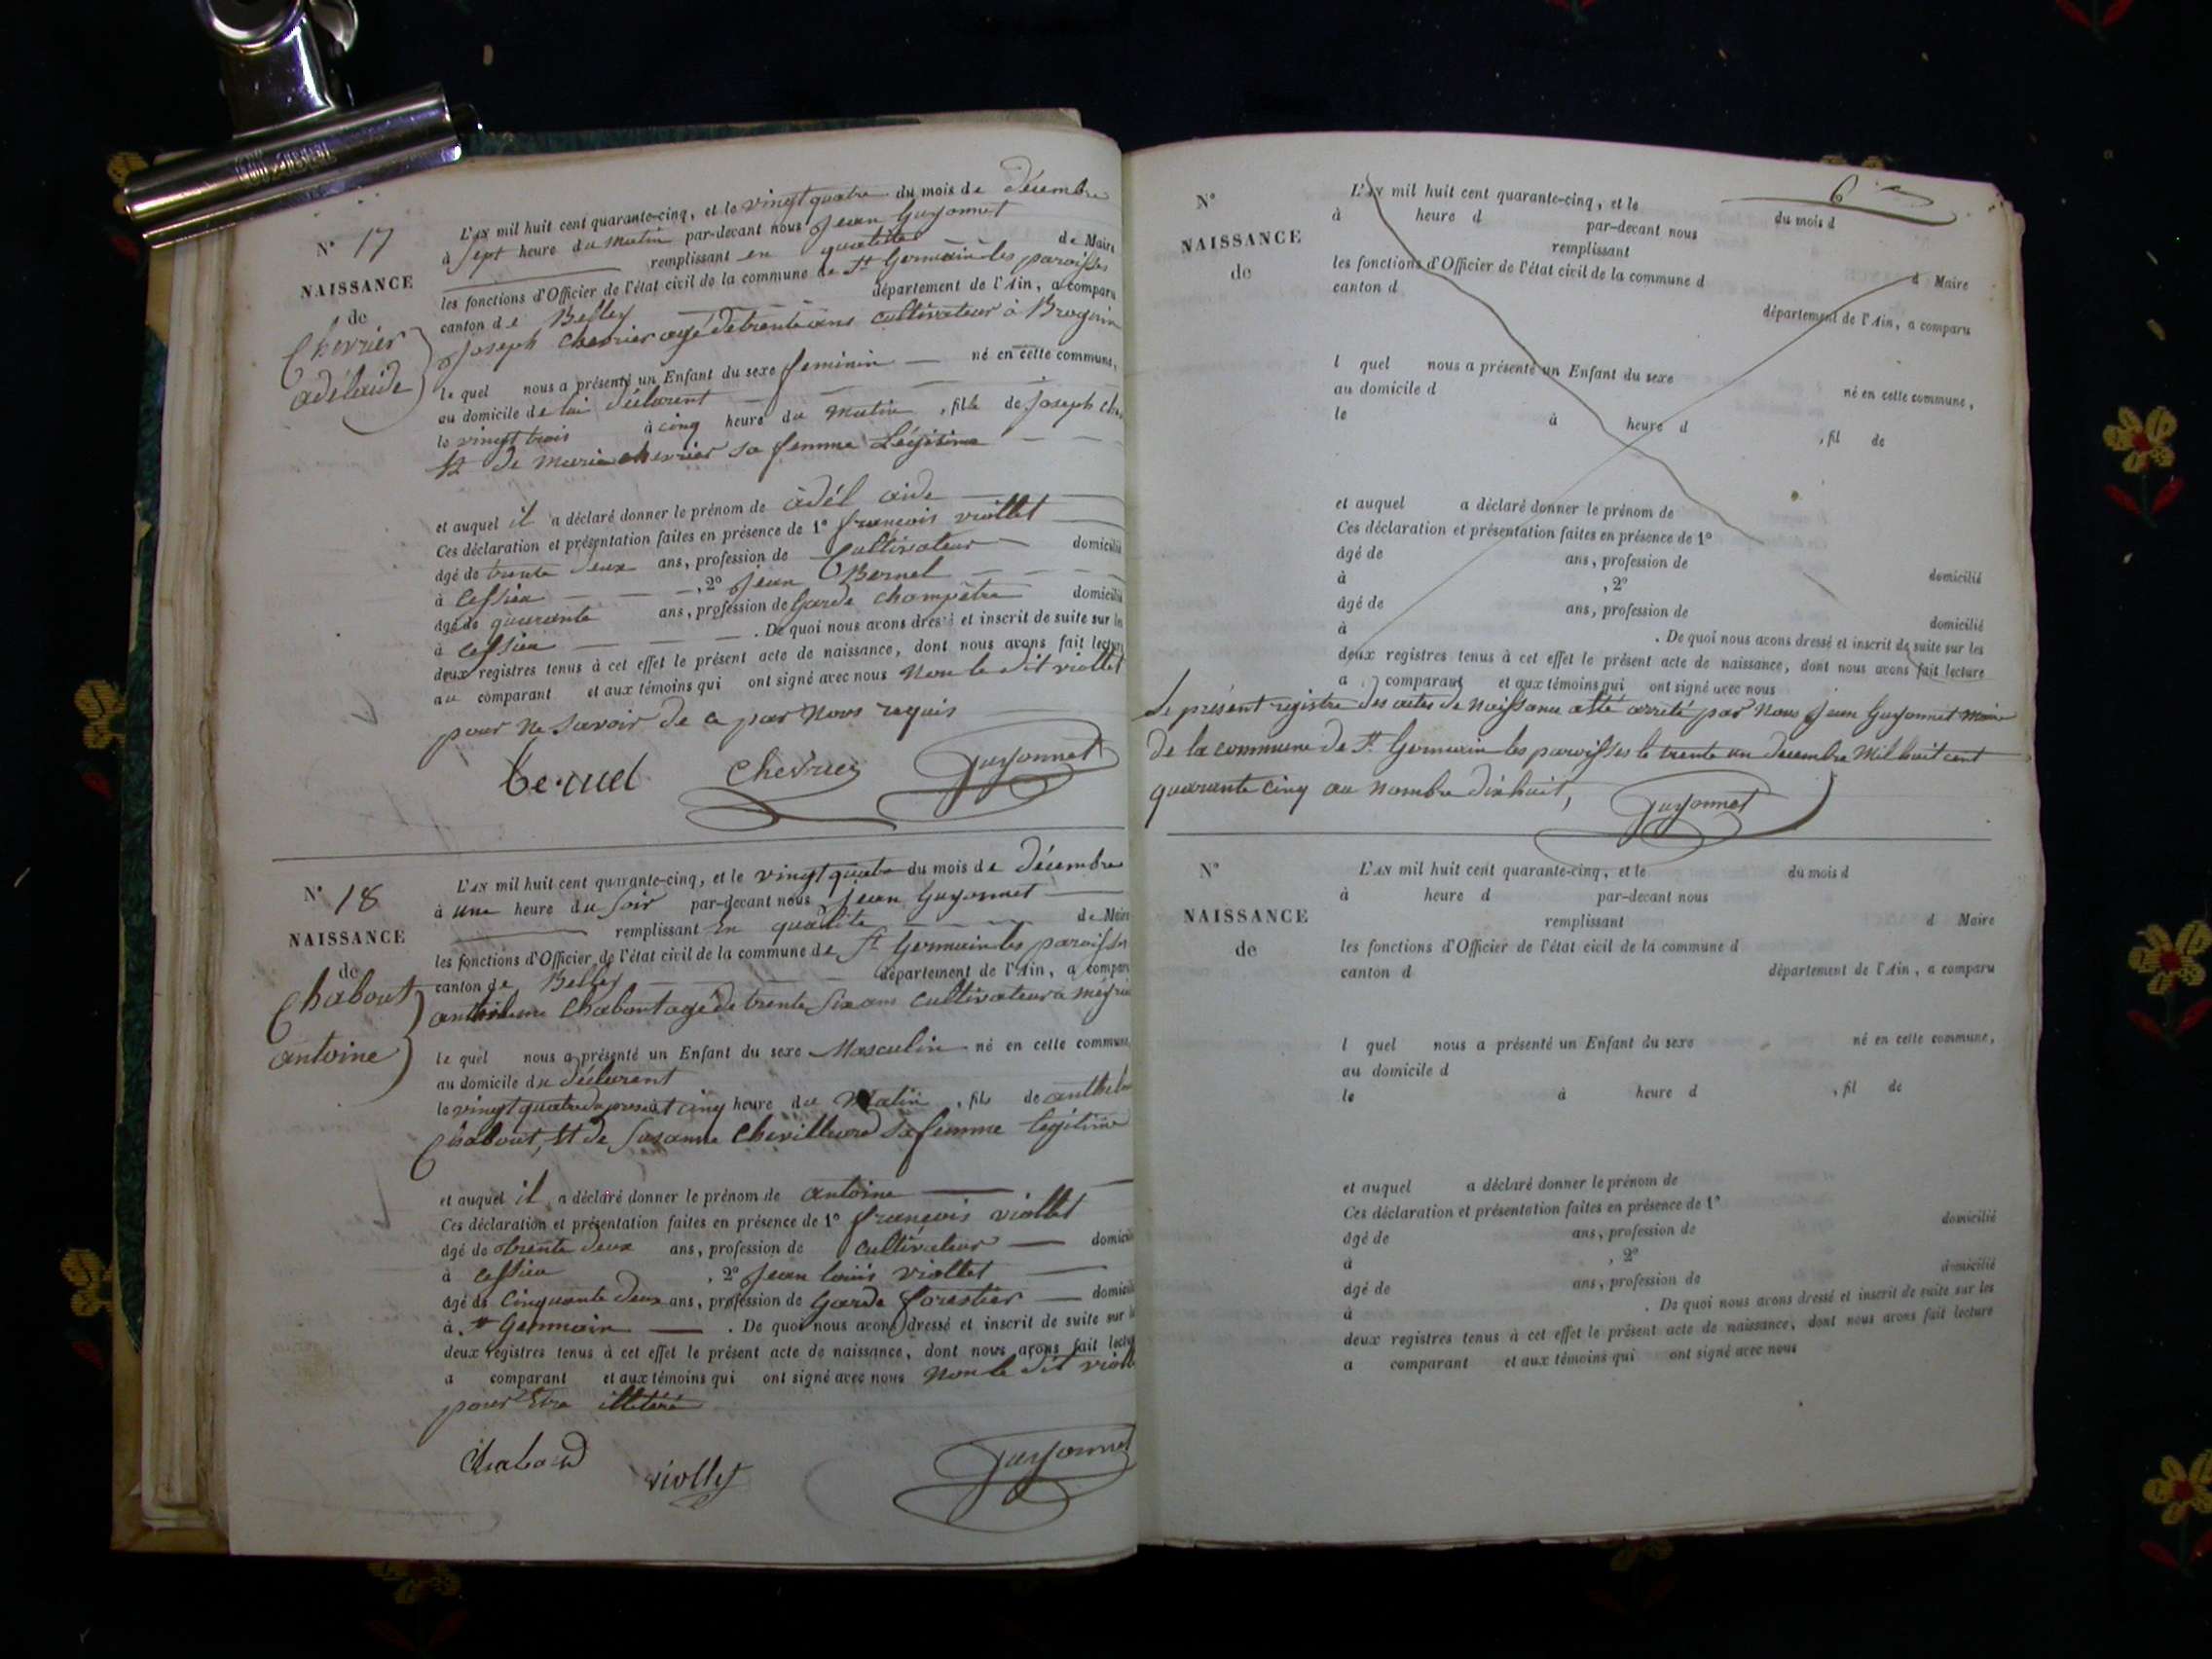 N° 17
NAISSANCE
de
Chevrier
adélaide
L'AN mil huit cent quarante-cinq, et le vingt quatre du mois de décembre
à sept heure du matin par-devant nous Jean Guyonnet
remplissant en qualité de Maire
les fonctions d'Officier de l'état civil de la commune de St Germain les paroisses
canton de Belley département de l'Ain, a comparu
Joseph Chevrier agé de trente ans cultivateur à
le quel nous a présenté un Enfant du sexe feminin né en cette commune,
au domicile de lui déclarent
le vingt trois à cinq heure du matin, fille de Joseph
Et de Marie chevrier sa femme Légitime
et auquel il a déclaré donner le prénom de adél aide
Ces déclaration et présentation faites en présence de 1° françois viollet
âgé de trente deux ans, profession de Cultivateur domicilié
à Cessieu , 2° Jean Bernel
âgé de quarante ans, profession de Garde champêtre domicilié
à Cessieu . De quoi nous avons dressé et inscrit de suite sur les
deux registres tenus à cet effet le présent acte de naissance, dont nous avons fait lecture
au comparant et aux témoins qui ont signé avec nous Non le dit viollet
pour ne savoir de ce par Nous requis
Chevrier Guyonnet
N° 18
NAISSANCE
de
Chabout
antoine
L'AN mil huit cent quarante-cinq, et le vingt quatre du mois de décembre
à une heure du soir par-devant nous Jean Guyonnet
remplissant en qualité de Maire
les fonctions d'Officier de l'état civil de la commune de St Germain les paroisses
canton de Belley département de l'Ain, a comparu
anthelme Chabout agé de trente six ans cultivateur à
le quel nous a présenté un Enfant du sexe Masculin né en cette commune,
au domicile du déclarent
le vingt quatre du present à cinq heure du Matin, fils de anthelme
Chabout, Et de Susanne sa femme légitime
et auquel il a déclaré donner le prénom de antoine
Ces déclaration et présentation faites en présence de 1° françois viollet
âgé de trente deux ans, profession de Cultivateur domicilié
à Cessieu , 2° Jean louis viollet
âgé de Cinquante deux ans, profession de Garde forestier domicilié
à St Germain . De quoi nous avons dressé et inscrit de suite sur les
deux registres tenus à cet effet le présent acte de naissance, dont nous avons fait lecture
a comparant et aux témoins qui ont signé avec nous Non le dit viollet
pour Etre illetéré
Chaboud viollet Guyonnet
6
N°
NAISSANCE
de
L'AN mil huit cent quarante-cinq, et le du mois d
à heure d par-devant nous
remplissant d Maire
les fonctions d'Officier de l'état civil de la commune d
canton d département de l'Ain, a comparu
l quel nous a présenté un Enfant du sexe né en cette commune,
au domicile d
le à heure d , fil de
et auquel a déclaré donner le prénom de
Ces déclaration et présentation faites en présence de 1°
âgé de ans, profession de domicilié
à , 2°
âgé de ans, profession de domicilié
à . De quoi nous avons dressé et inscrit de suite sur les
deux registres tenus à cet effet le présent acte de naissance, dont nous avons fait lecture
a comparant et aux témoins qui ont signé avec nous
Le présent registre des actes de Naissance a été arrêté par Nous Jean Guyonnet Maire
de la commune de St Germain les paroisses le trente un decembre Mil huit cent
quarante cinq au Nombre dixhuit,
Guyonnet
N°
NAISSANCE
de
L'AN mil huit cent quarante-cinq, et le du mois d
à heure d par-devant nous
remplissant d Maire
les fonctions d'Officier de l'état civil de la commune d
canton d département de l'Ain, a comparu
l quel nous a présenté un Enfant du sexe né en cette commune,
au domicile d
le à heure d , fil de
et auquel a déclaré donner le prénom de
Ces déclaration et présentation faites en présence de 1°
âgé de ans, profession de domicilié
à , 2°
âgé de ans, profession de domicilié
à . De quoi nous avons dressé et inscrit de suite sur les
deux registres tenus à cet effet le présent acte de naissance, dont nous avons fait lecture
a comparant et aux témoins qui ont signé avec nous